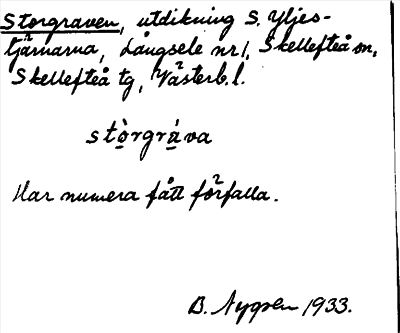 Storgraven, utdikning S. Yljes-
tjärnarna, Långsele nr 1, Skellefteå sn,
Skellefteå tg, Västerb. l.
stò̱rgrá̱va
Har numera fått förfalla.
B. Nygren 1933.